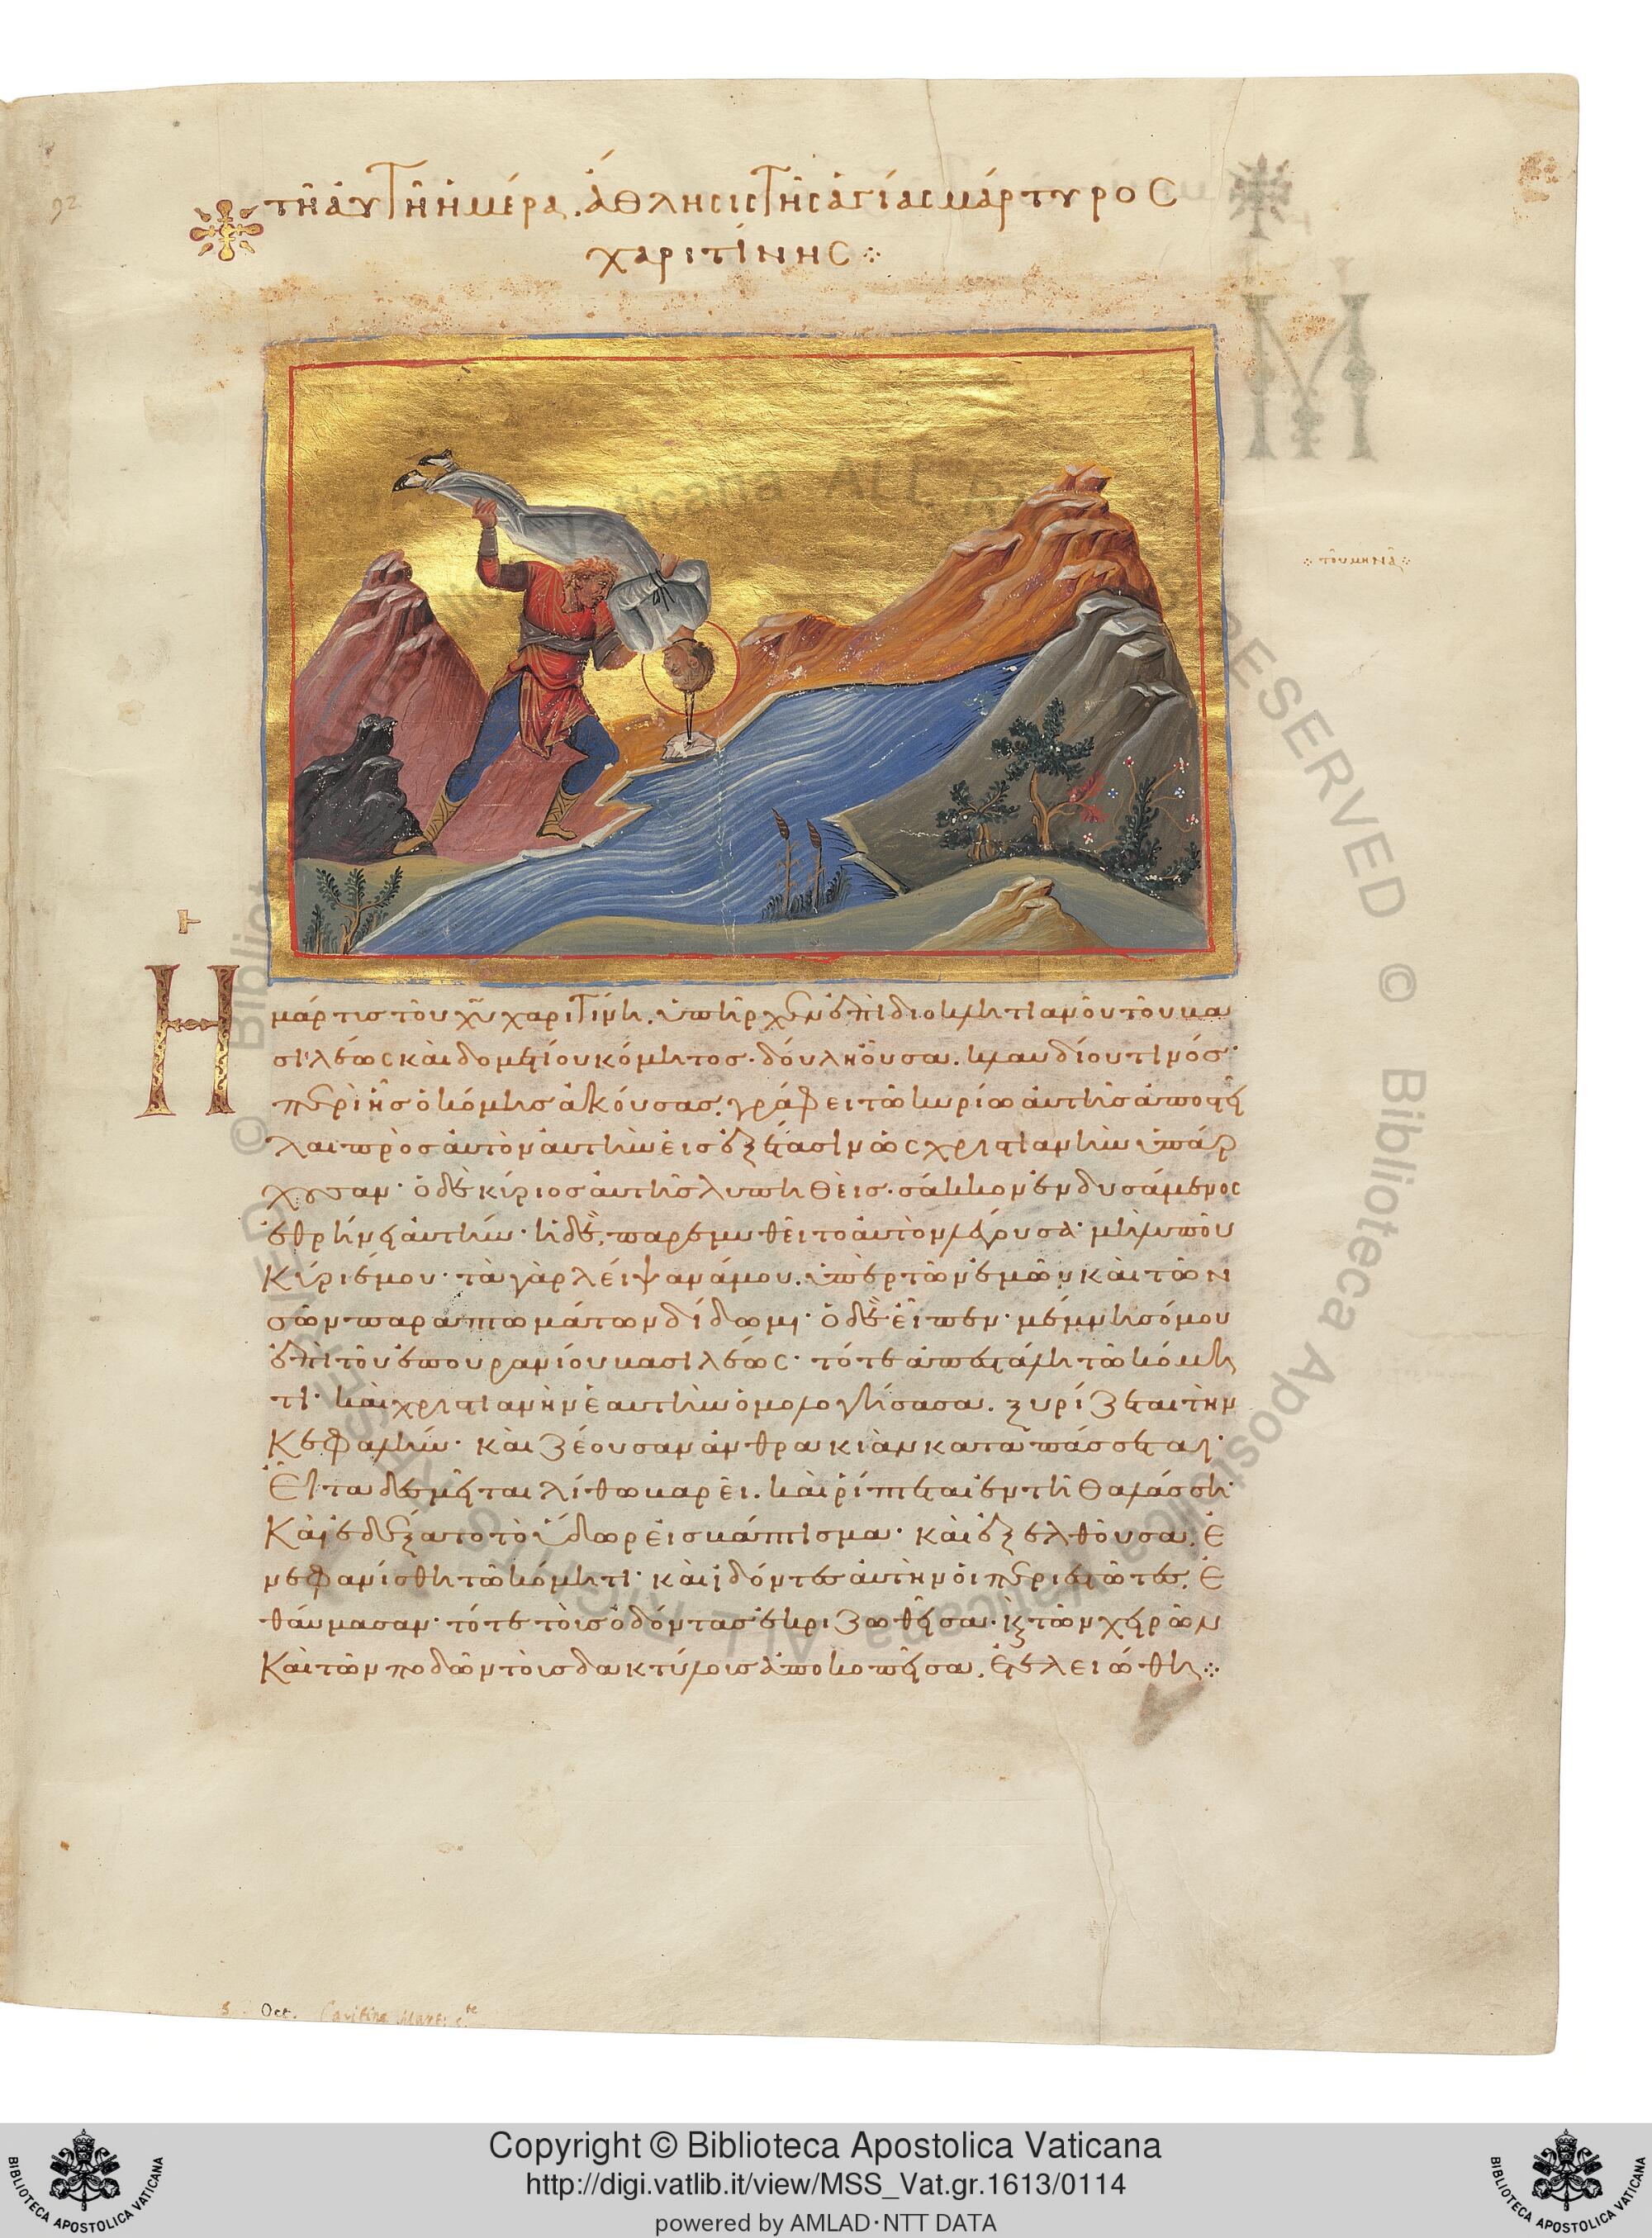 92
τῆ αὐτῆ ἡμέρα. ἄθλησις τῆς ἁγίας μάρτυρος
χαριτίνης ⁘
Ἡ μάρτις τοῦ χῦ χαριτίνη. ὑπῆρχεν ἐπὶ διοκλητιανοῦ τοῦ βα
σιλέως καὶ δομετίου κόμητος· δούλη οὖσα. κλαυδίου τινός·
περὶ ἧς ὁ κόμης ἀκούσας. γράφει τῶ κυρίω αὐτῆς ἀποστεῖ
λαι πρὸς αὐτὸν αὐτὴν εἰς ἐξέτασιν ὡς χριστιανὴν ὑπάρ
χουσαν· ὁ δὲ κύριος αὐτῆς λυπηθεὶς. σάκκον ἐνδυσάμενος
ἐθρήνει αὐτήν· ἡ δὲ, παρεμυθεῖτο αὐτὸν λέγουσα· μὴ λυποῦ
κύριέ μου· τὰ γὰρ λείψανά μου. ὑπὲρ τῶν ἐμῶν καὶ τῶν
σῶν παραπτωμάτων δίδωμι· ὁ δὲ εἶπεν· μέμνησό μου
ἐπὶ τοῦ ἐπουρανίου βασιλέως· τότε ἀπεστάλη τῶ κόμη
τι· καὶ χριστιανὴν ἑαυτὴν ὁμολογήσασα. ξυρίζεται τὴν
κεφαλήν· καὶ ζέουσαν ἀνθρακιὰν καταπάσσεται·
Εἶτα δεσμεῖται λίθω βαρεῖ. καὶ ρίπτεται ἐν τῆ θαλάσση·
καὶ ἐδέξατο τὸ ὕδωρ εἰς βάπτισμα· καὶ ἐξελθοῦσα. ἐ
νεφανίσθη τῶ κόμητι· καὶ ἰδόντες αὐτὴν οἱ περιεστῶτες. ἐ
θαύμασαν· τότε τοὶς ὀδόντας ἐκριζωθεῖσα. κ τῶν χειρῶν
καὶ τῶν ποδῶν τοὶς δακτύλοις ἀποκοπεῖσα. ἐτελειώθη ⁘
5 Oct. Caritina Mart
Copyright © Biblioteca Apostolica Vaticana
http://digi.vatlib.it/view/MSS_Vat.gr.1613/0114
powered by AMLAD·NTT DATA
BIBLIOTECA APOSTOLICA VATICANA
BIBLIOTECA APOSTOLICA VATICANA
© Biblioteca Apostolica Vaticana ALL RIGHTS RESERVED